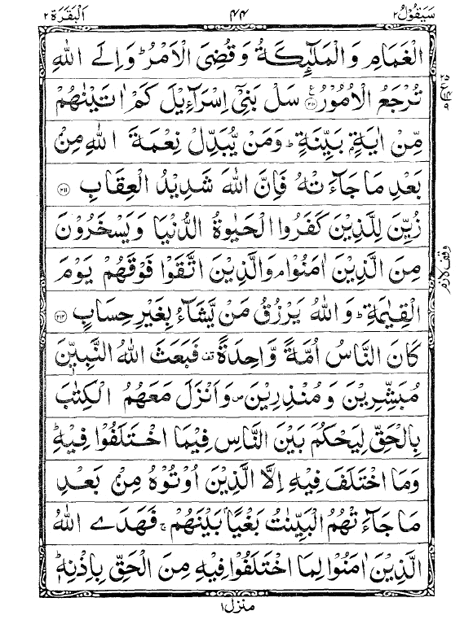 سَيَقُولُ ٢ ٤٤ اَلْبَقَرَة ٢
الْغَمَامِ وَالْمَلٰٓئِكَةُ وَقُضِیَ الْاَمْرُ ؕ وَاِلَى اللّٰهِ
تُرْجَعُ الْاُمُوْرُ ؑ ﴿۲۱۰﴾ سَلْ بَنِیْۤ اِسْرَآءِیْلَ كَمْ اٰتَیْنٰهُمْ
مِّنْ اٰیَةٍۭ بَیِّنَةٍ ؕ وَمَنْ یُّبَدِّلْ نِعْمَةَ اللّٰهِ مِنْۢ
بَعْدِ مَا جَآءَتْهُ فَاِنَّ اللّٰهَ شَدِیْدُ الْعِقَابِ ﴿۲۱۱﴾
زُیِّنَ لِلَّذِیْنَ كَفَرُوا الْحَیٰوةُ الدُّنْیَا وَیَسْخَرُوْنَ
مِنَ الَّذِیْنَ اٰمَنُوْا ۘ وَالَّذِیْنَ اتَّقَوْا فَوْقَهُمْ یَوْمَ
وقف لازم
الْقِیٰمَةِ ؕ وَاللّٰهُ یَرْزُقُ مَنْ یَّشَآءُ بِغَیْرِ حِسَابٍ ﴿۲۱۲﴾
كَانَ النَّاسُ اُمَّةً وَّاحِدَةً ۫ فَبَعَثَ اللّٰهُ النَّبِیّٖنَ
مُبَشِّرِیْنَ وَمُنْذِرِیْنَ ۪ وَاَنْزَلَ مَعَهُمُ الْكِتٰبَ
بِالْحَقِّ لِیَحْكُمَ بَیْنَ النَّاسِ فِیْمَا اخْتَلَفُوْا فِیْهِ ؕ
وَمَا اخْتَلَفَ فِیْهِ اِلَّا الَّذِیْنَ اُوْتُوْهُ مِنْۢ بَعْدِ
مَا جَآءَتْهُمُ الْبَیِّنٰتُ بَغْیًۢا بَیْنَهُمْ ۚ فَهَدَی اللّٰهُ
الَّذِیْنَ اٰمَنُوْا لِمَا اخْتَلَفُوْا فِیْهِ مِنَ الْحَقِّ بِاِذْنِهٖ ؕ
منزل ١